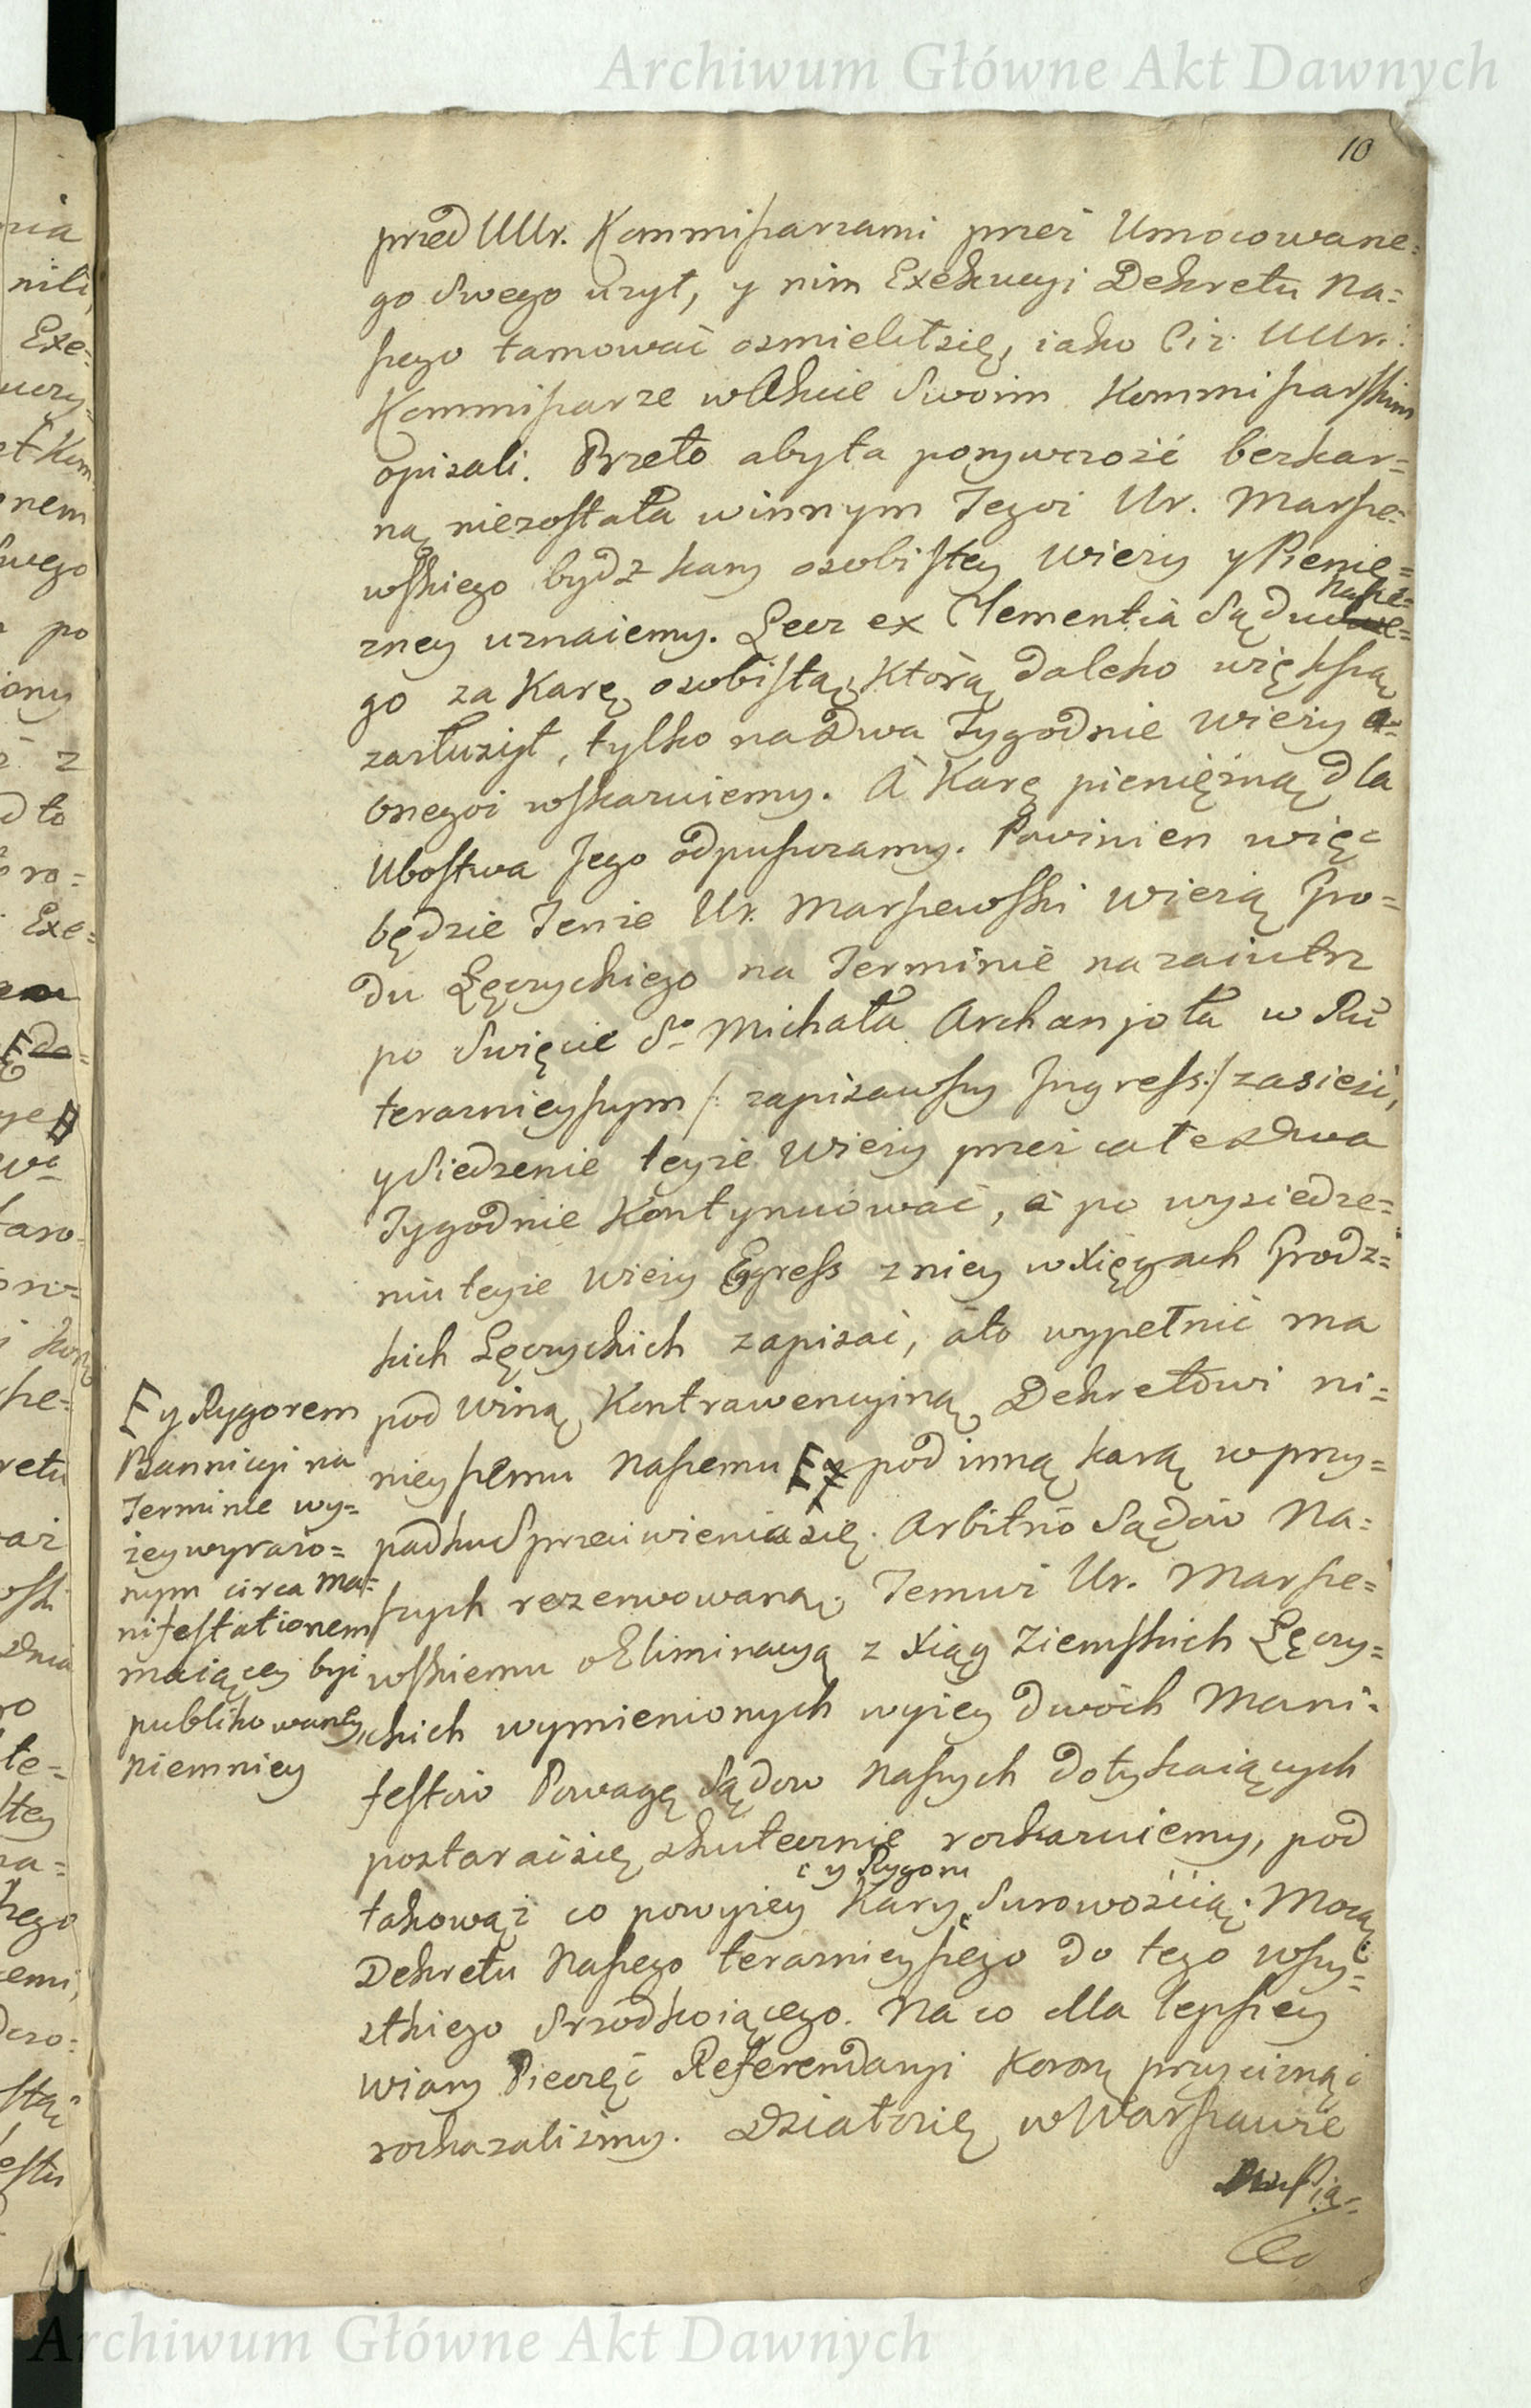 Archiwum Główne Akt Dawnych
10
przed UUr. Kommissarzami przez Umocowane=
go Swego użył, y nim Exekucyi Dekretu Na=
szego tamować osmielił się, iako Ciż UUr.
Kommissarze w Akcie Swoim Kommissarskim
opisali. Przeto aby ta porywczość bezkar=
ną niezostała winnym Tegoż Ur. Marsze=
wskiego bydz kary osobistey Wieży y Pienię=
nasze=
żney uznaiemy. Lecz ex Clementia Sądu
go za Karę osobistą, którą daleko większą
zasłużył, tylko na dwa Tygodnie Wieży
onegoż wskazuiemy. A Karę pieniężną dla
Ubostwa Jego odpuszczamy. Powinien więc
będzie Tenże Ur. Marszewski Wieżą Gro=
du Łęczyckiego na Terminie nazaiutrz
po Swięcie So Michała Archanjoła w Rū
teraznieyszym /: zapisawszy Ingress :/ zasieść,
y Siedzenie teyże Wieży przez całe dwa
Tygodnie Kontynuować, a po wysiedze=
niu teyże Wieży Egress z niey w Xięgach Grodz=
kich Łęczyckich zapisać, a to wypełnić ma
pod Winą Kontrawencyiną Dekretowi ni=
nieyszemu Naszemu pod inną karą w przy=
padku Sprzeciwienia się Arbitrio Sądów Na=
szych rezerwowaną. Temuż Ur. Marsze=
wskiemu o Eliminacyą z Xiąg Ziemskich Łęczy=
ckich wymienionych wyżey dwóch Mani=
festów Powagę Sądow Naszych dotykaiących
postarać się skutecznie rozkazuiemy, pod
y Rygoru
takowąż co powyżey Kary Surowością. Mocą
Dekretu Naszego teraznieyszego do tego wszy=
stkiego Srzodkoiącego. Na co dla lepszey
wiary Pieczęć Referendaryi Korony przycisnąć
rozkazalismy. Działo się w Warszawie
F y Rygorem
Bannicyi na
Terminie wy=
żey wyrażo=
nym circa Ma=
nifestationem
maiącey być
publikowaney,
niemniey
Archiwum Główne Akt Dawnych